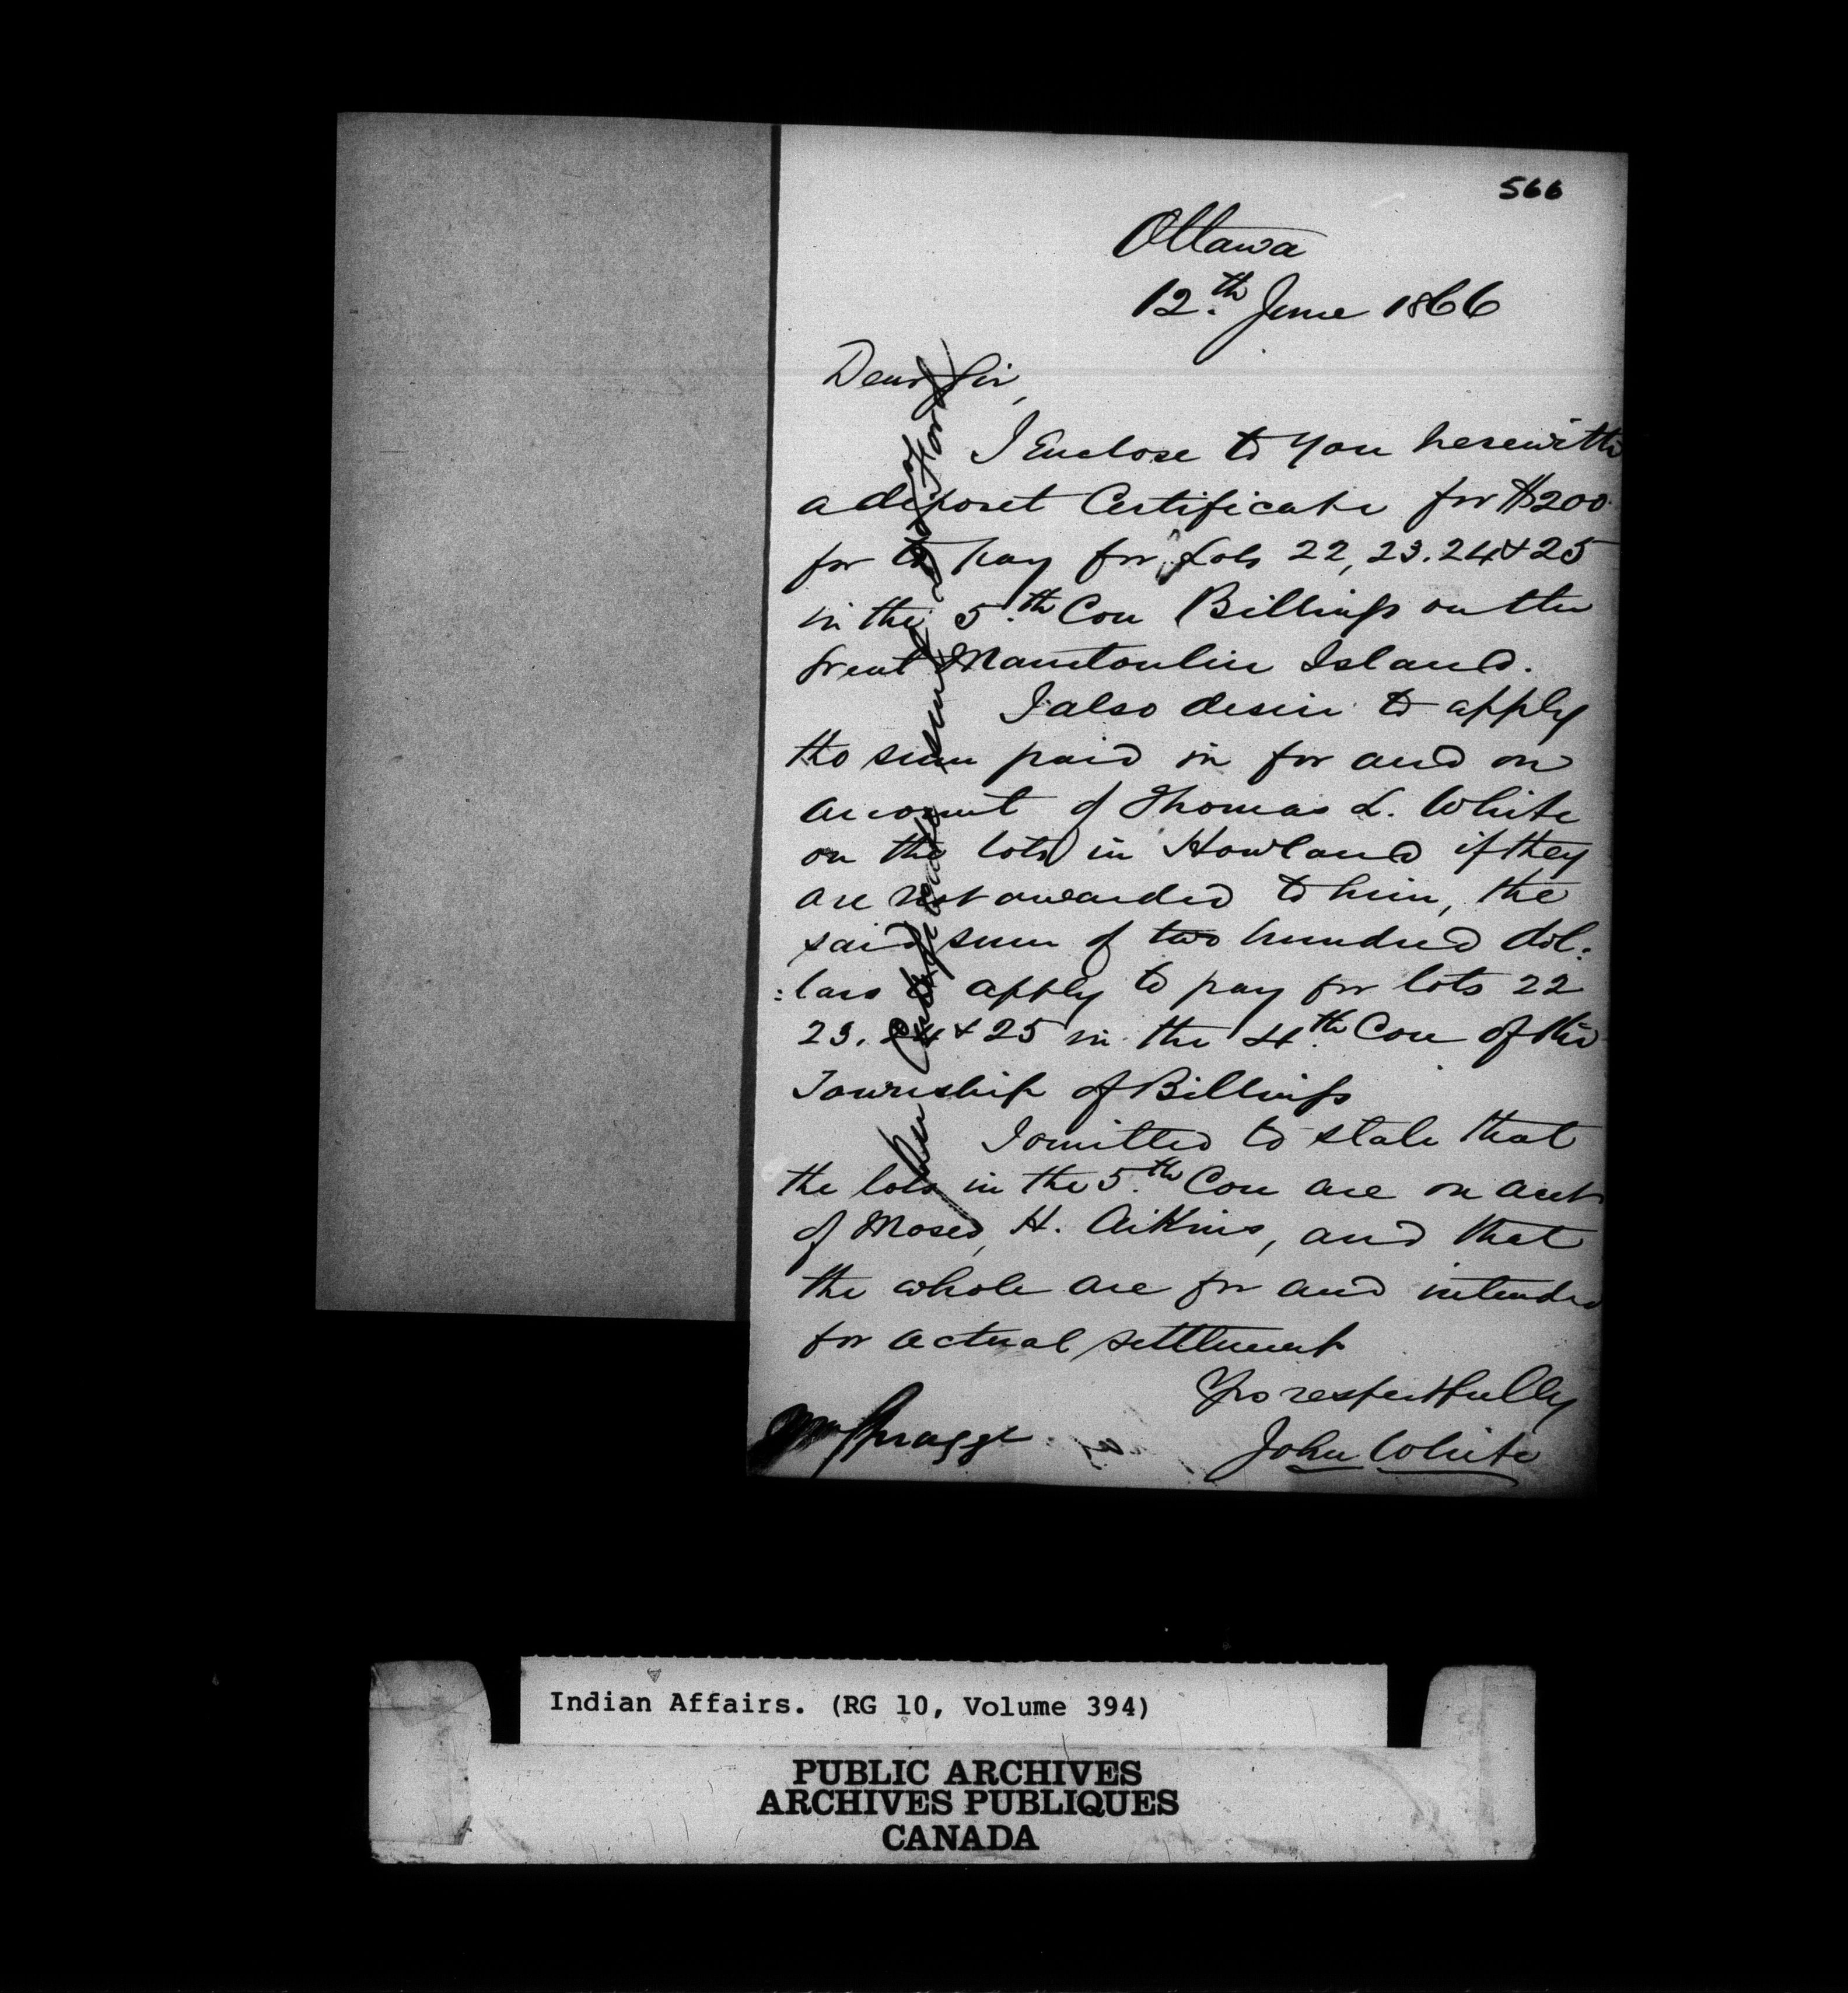 566
Ottawa
12.th June 1866
Dear Sir,
I Enclose to You herewith
a deposet Certificate for $200
for to pay for Lots 22, 23. 24 & 25
in the 5.th Con Billings on the
Great Manitoulin Island.
I also desire to apply
the sum paid in for and on
account of Thomas L. White
on the lots in Howland if they
are not awarded to him, the
said sum of two hundred dol:
:lars to apply to pay for lots 22
23. 24 & 25 in the 4.th Con of the
Township of Billings
I omitted to state that
the lots in the 5.th Con are on acct
of Moses, H. Aikins, and that
the whole are for and intended
for actual settlement
Yrs respectfully
John White
Wm Spragge
Indian Affairs. (RG 10, Volume 394)
PUBLIC ARCHIVES
ARCHIVES PUBLIQUES
CANADA